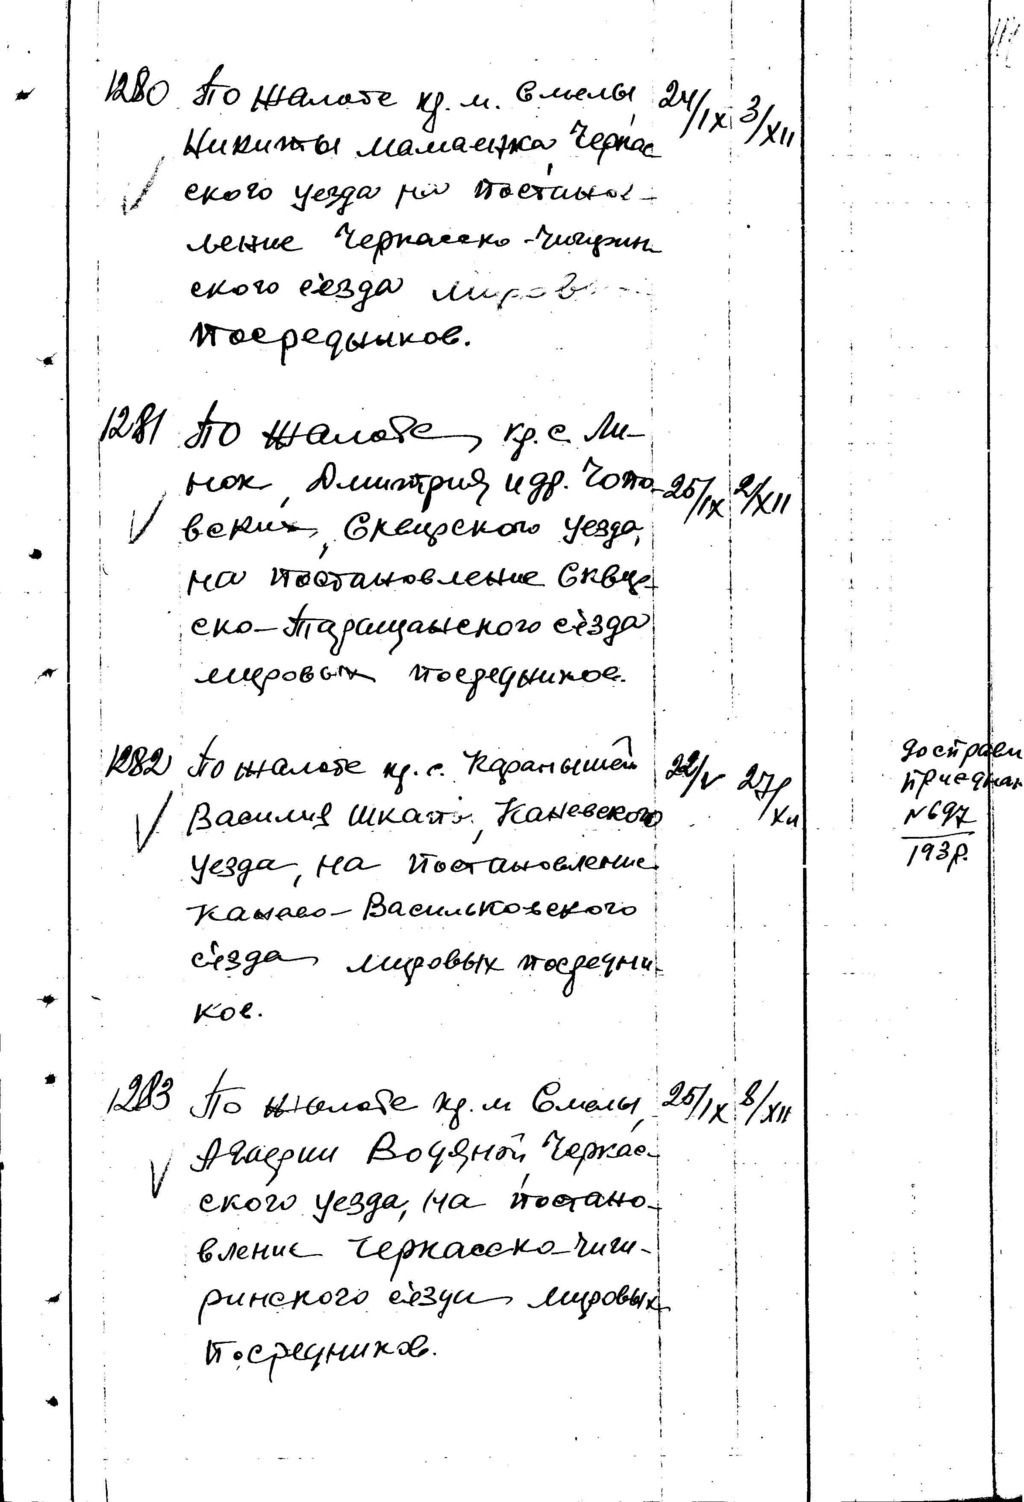 1280 По жалобе кр. м. Смелы, 24/IX 3/XII
Никиты Мамаенка, Черкас
ского уезда на постанов-
ление Черкасско-Чигирин
ского съезда мировых
посредников.
1281 По жалобе, кр. с. Ли-
нок, Дмитрия и др. Чопо- 25/IX 2/XII
вских, Сквирского уезда,
на постановление Сквир-
ско-Таращанского съезда
мировых посредников.
1282 По жалобе кр. с. Карапышей 22/V 27/XII
Василия Шкапы, Каневского
уезда, на постановление
Канево-Васильковского
съезда мировых посредни-
ков.
до справи
приєднан
№697
193р.
1283 По жалобе кр. м Смелы, 25/IX 8/XII
Агафии Водяной, Черкас-
ского уезда, на постано-
вление Черкасско-Чиги-
ринского съезда мировых
посредников.